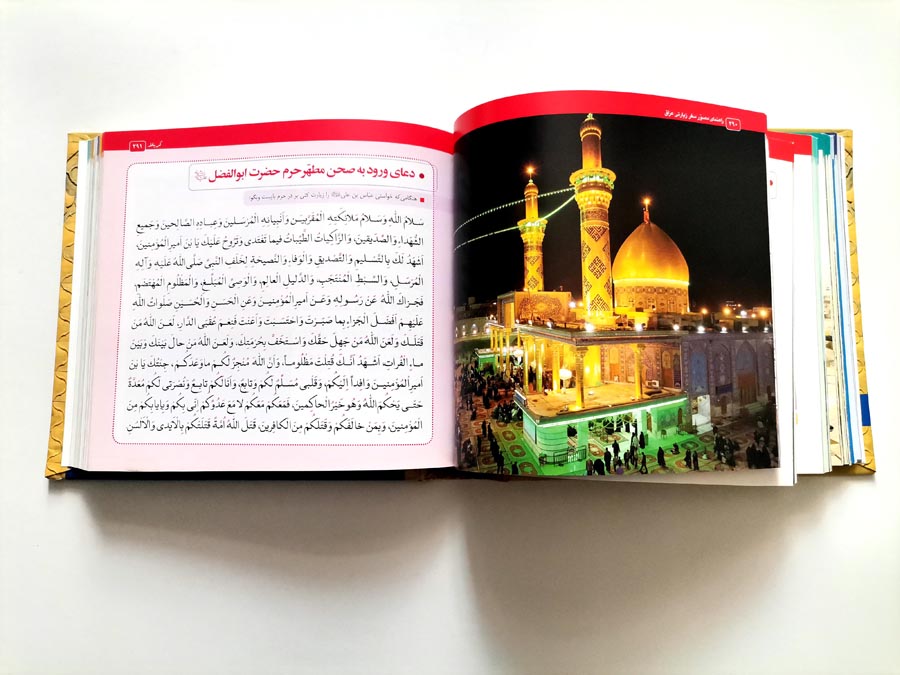 ۲۹۰
راهنمای مصور سفر زیارتی عراق
۲۹۱
دعای ورود به صحن مطهّر حرم حضرت ابوالفضل
هنگامی‌که خواستی عباس بن علی را زیارت کنی بر در حرم بایست و بگو
سَلامُ اللَّهِ وَسَلامُ مَلائِکَتِهِ الْمُقَرَّبِینَ وَأَنْبِیائِهِ الْمُرْسَلِینَ وَعِبادِهِ الصَّالِحِینَ وَجَمِیعِ
الشُّهَداءِ وَالصِّدِّیقِینَ، وَالزَّاکِیاتُ الطَّیِّباتُ فِیما تَغْتَدِی وَتَرُوحُ عَلَیْکَ یَا بْنَ أَمِیرِالْمُؤْمِنِینَ،
أَشْهَدُ لَکَ بِالتَّسْلِیمِ وَالتَّصْدِیقِ وَالْوَفاءِ وَالنَّصِیحَةِ لِخَلَفِ النَّبِیِّ صَلَّی‌اللَّهُ عَلَیْهِ وَآلِهِ
الْمُرْسَلِ، وَالسِّبْطِ الْمُنْتَجَبِ، وَالدَّلِیلِ الْعالِمِ، وَالْوَصِیِّ الْمُبَلِّغِ، وَالْمَظْلُومِ الْمُهْتَضَمِ،
فَجَزاکَ اللَّهُ عَنْ رَسُولِهِ وَعَنْ أَمِیرِالْمُؤْمِنِینَ وَعَنِ الْحَسَنِ وَالْحُسَیْنِ صَلَواتُ اللَّهِ
عَلَیْهِمْ أَفْضَلَ الْجَزاءِ بِما صَبَرْتَ وَاحْتَسَبْتَ وَأَعَنْتَ فَنِعْمَ عُقْبَی الدَّارِ، لَعَنَ اللَّهُ مَنْ
قَتَلَکَ وَلَعَنَ اللَّهُ مَنْ جَهِلَ حَقَّکَ وَاسْتَخَفَّ بِحُرْمَتِکَ، وَلَعَنَ اللَّهُ مَنْ حالَ بَیْنَکَ وَبَیْنَ
ماءِ الْفُراتِ، أَشْهَدُ أَنَّکَ قُتِلْتَ مَظْلُوماً، وَأَنَّ اللَّهَ مُنْجِزٌ لَکُمْ ما وَعَدَکُمْ، جِئْتُکَ یَا بْنَ
أَمِیرِ الْمُؤْمِنِینَ وَافِداً إِلَیْکُمْ، وَقَلْبِی مُسَلِّمٌ لَکُمْ وَتابِعٌ، وَأَنَا لَکُمْ تابِعٌ وَنُصْرَتِی لَکُمْ مُعَدَّةٌ
حَتَّی یَحْکُمَ اللَّهُ وَهُوَ خَیْرُ الْحاکِمِینَ، فَمَعَکُمْ مَعَکُمْ لا مَعَ عَدُوِّکُمْ إِنِّی بِکُمْ وَبِإِیابِکُمْ مِنَ
الْمُؤْمِنِینَ، وَبِمَنْ خالَفَکُمْ وَقَتَلَکُمْ مِنَ الْکافِرِینَ، قَتَلَ اللَّهُ أُمَّةً قَتَلَتْکُمْ بِالْأَیْدِی وَالْأَلْسُنِ